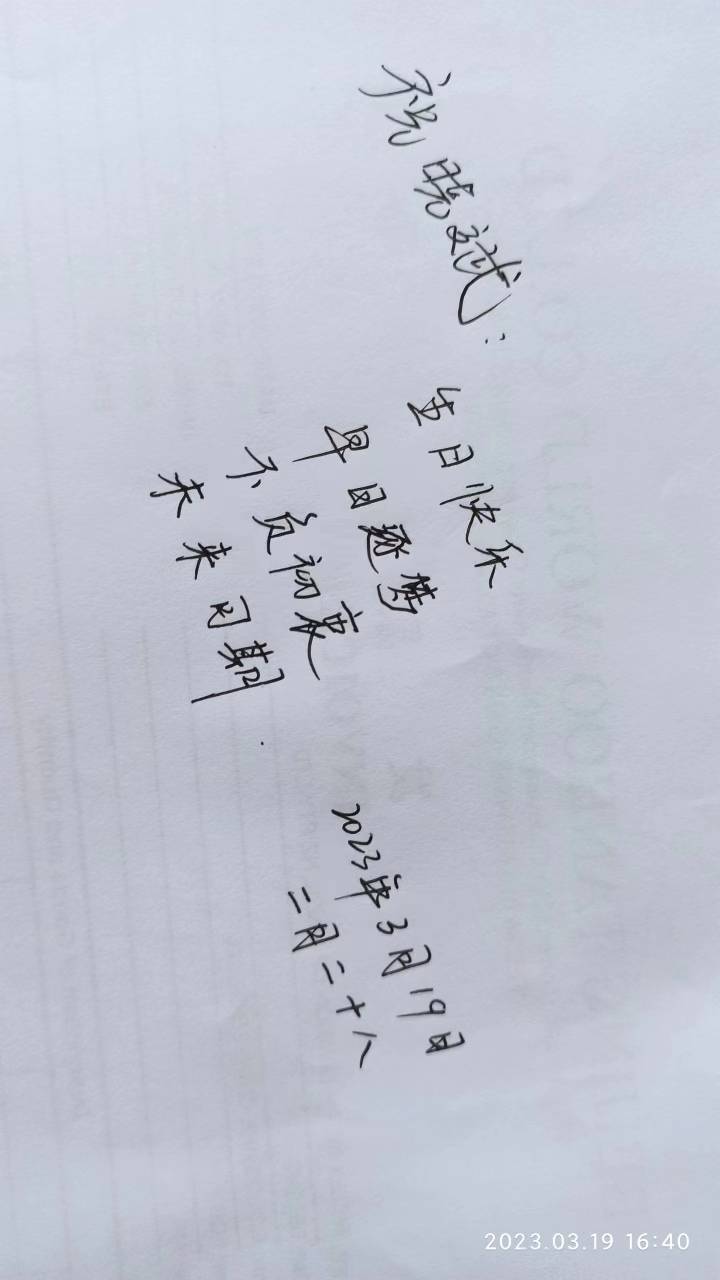 祝晓斌:
生日快乐
早日逐梦
不负初衷
未来可期
2023年3月19日
二月二十八
2023.03.19 16:40